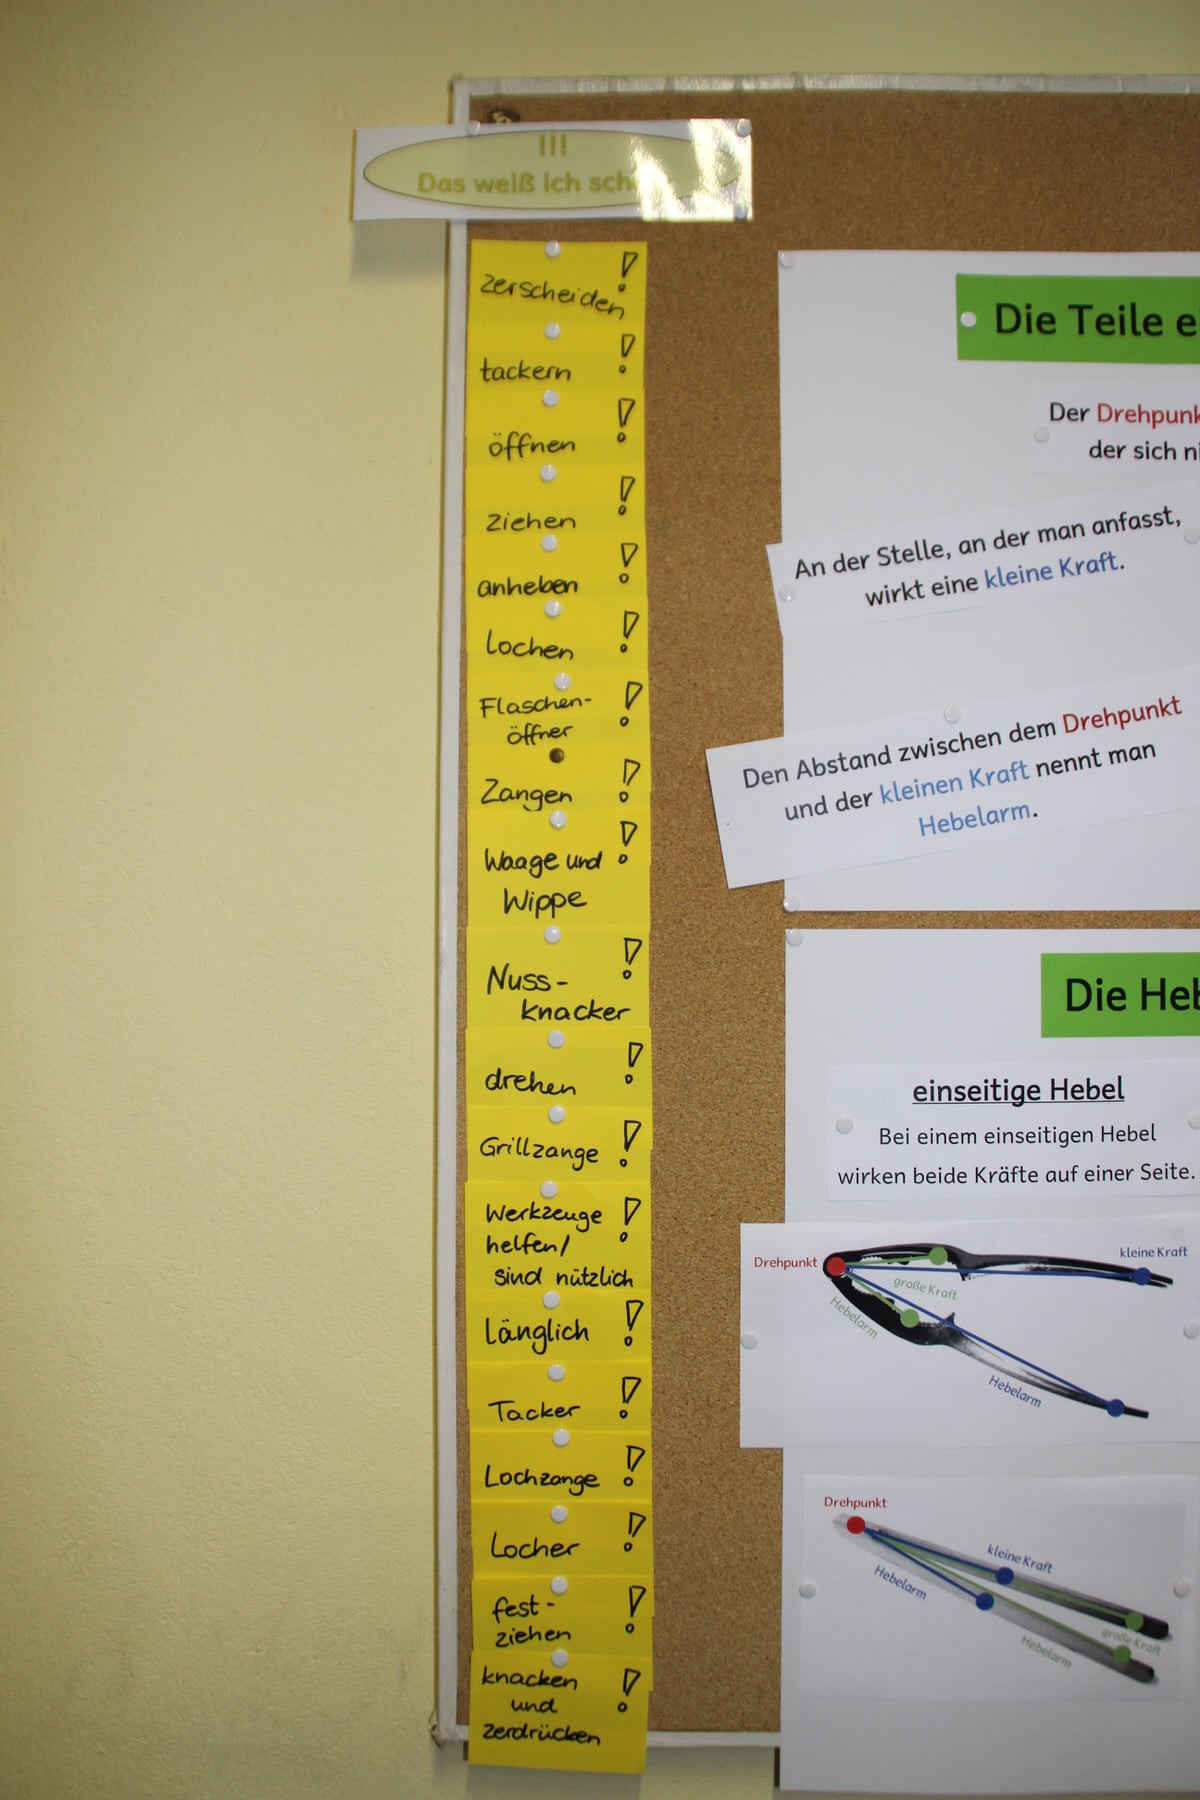 !!!
Das weiß ich
zerscheiden!
tackern!
öffnen!
ziehen!
anheben!
Lochen!
Flaschen-!
öffner
Zangen!
Waage und!
Wippe
Nuss-!
knacker
drehen!
Grillzange!
Werkzeuge!
helfen/
sind nützlich
Länglich!
Tacker!
Lochzange!
Locher!
fest-!
ziehen
knacken!
und
zerdrücken
Die Teile e
Der Drehpunk
der sich ni
An der Stelle, an der man anfasst,
wirkt eine kleine Kraft.
Den Abstand zwischen dem Drehpunkt
und der kleinen Kraft nennt man
Hebelarm.
Die Heb
einseitige Hebel
Bei einem einseitigen Hebel
wirken beide Kräfte auf einer Seite.
Drehpunkt
kleine Kraft
große Kraft
Hebelarm
Hebelarm
Drehpunkt
kleine Kraft
Hebelarm
große Kraft
Hebelarm